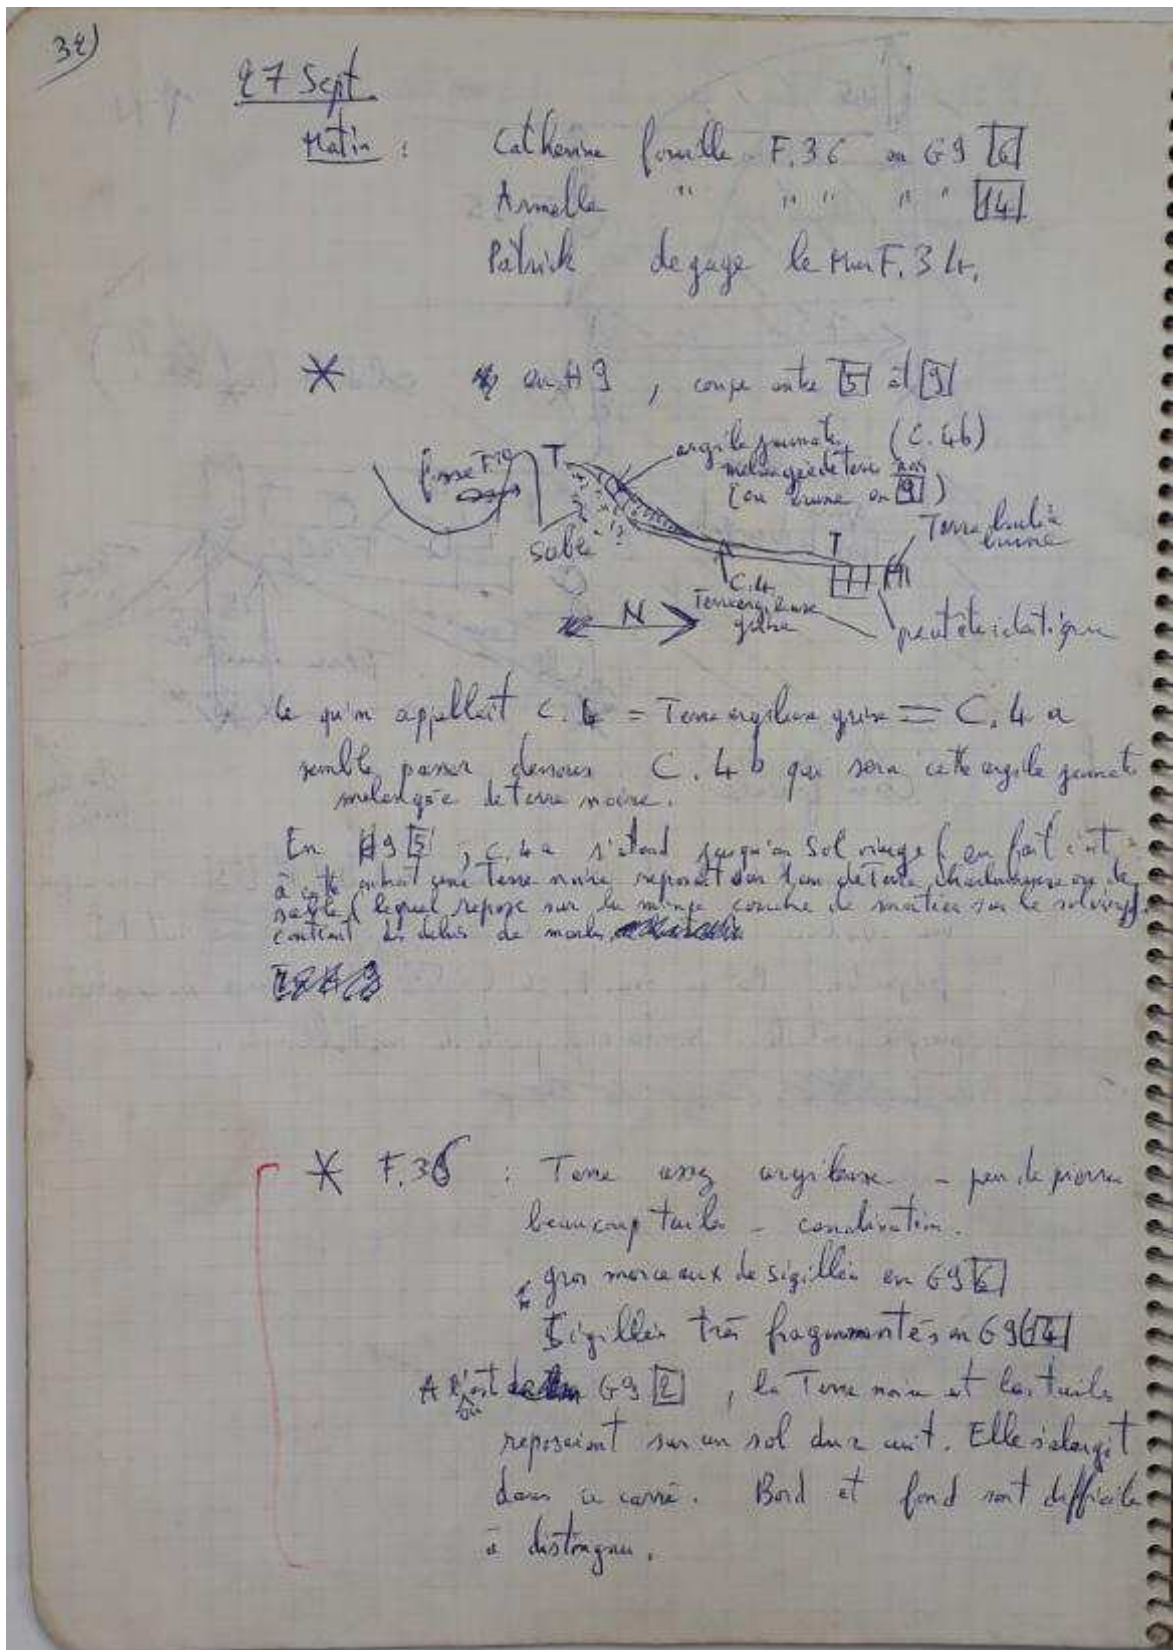 32)
27 Sept.
Matin : Catherine fouille F.36 en G9 [6]
Armelle " " " " " [14]
Patrick degage le Mur F.34.
* en H9, coupe entre [5] et [9]
fosse F19 T argile jaunatre (C.4b)
melangée de terre noire
(ou brune en [9])
sable ? T Terre brulée
brune
C.4
Terre argileuse
grise
N peut être identique
Ce qu'on appellait C.4 = Terre argileuse grise = C.4a
semble passer dessous C.4b qui sera cette argile jaunatre
mélangée de terre noire.
En H9 [5], C.4a s'étend jusqu'au sol rouge (en fait c'est
à cet endroit une terre noire reposant sur 1 cm de terre charbonneuse ou de
sable) lequel repose sur la mince couche de mortier sur le sol rouge.
contient des débris de
* F.36 : Terre assez argileuse - peu de pierres
beaucoup tuiles - concentration.
gros morceaux de sigillée en G9 [6]
Sigillée très fragmentés en G9 [14]
A l'est G9 [2], la Terre noire et les tuiles
reposaient sur un sol dur cuit. Elle s'elargit
dans ce carré. Bord et fond sont difficile
à distinguer.